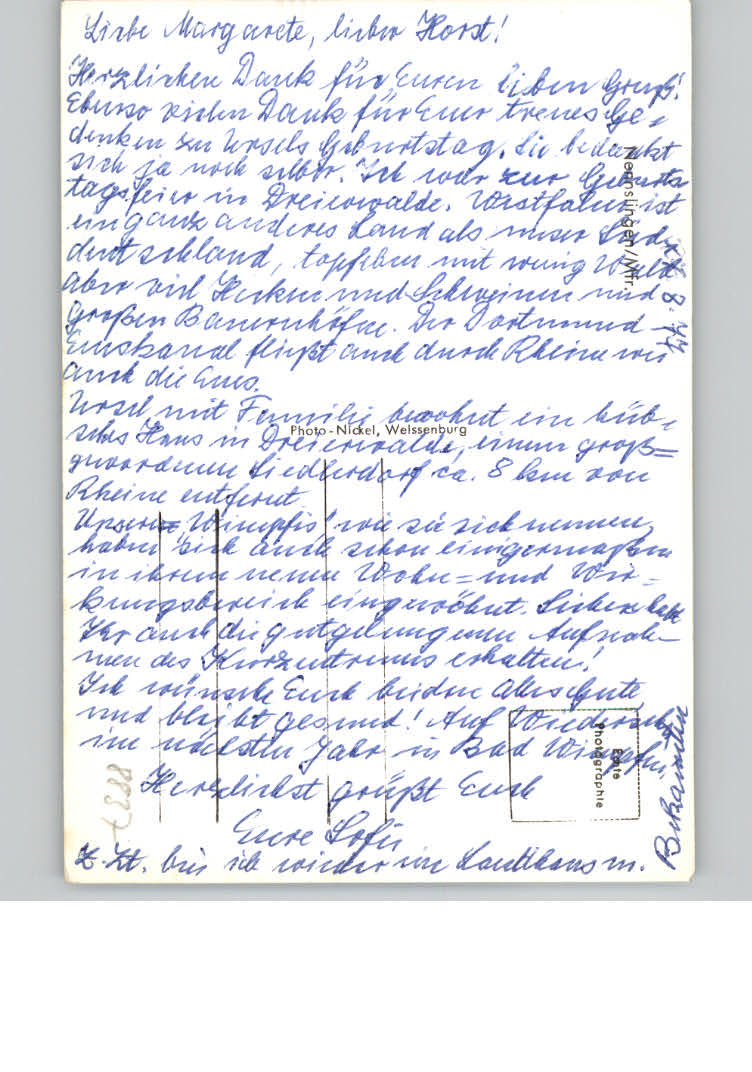 Liebe Margarete, lieber Horst!
Herzlichen Dank für Euren lieben Gruß!
Ebenso vielen Dank für Euer treues Ge-
denken zu Ursels Geburtstag. Sie bedankt
sich ja noch selber. Ich war zur Geburts
tagsfeier in Dreierwalde. Westfalen ist
ein ganz anderes Land als unser Süd-
deutschland, topfeben mit wenig Wald
aber viel Hecken und Schweinen und
großen Bauernhöfen. Der Dortmund
Emskanal fließt auch durch Rheine wie
auch die Ems.
Ursel mit Familie bewohnt ein hüb-
sches Haus in Dreierwalde, einem groß=
gewordenen Siedlerdorf ca. 8 km von
Rheine entfernt.
Unsere "Wimpfis" wie sie sich nennen,
haben sich auch schon einigermaßen
in ihrem neuen Wohn= und Wir=
kungsbereich eingewöhnt. Sicher habt
Ihr auch die gutgelungenen Aufnah-
men des Kurzentrums erhalten!
Ich wünsche Euch beiden alles Gute
und bleibt gesund! Auf Wiedersehn
im nächsten Jahr in Bad Wimpfen,
Herzlichst grüßt Euch
Eure Sofie
z. Zt. bin ich wieder im Landhaus m.
Bekannten
Nennslingen/Mfr.
8.
Photo-Nickel, Weissenburg
Echte
Photographie